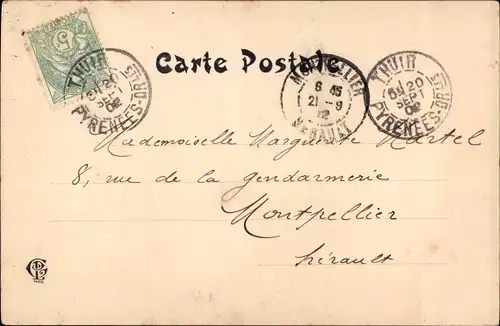 Carte Postale
5
THUIR
6H 20
SEPT
02
PYRENEES-ORles
MONTPELLIER
6 45
21-9
02
HERAULT
THUIR
6H 20
SEPT
02
PYRENEES-ORles
Mademoiselle Marguerite Martel
8, rue de la Gendarmerie
Montpellier
Hérault